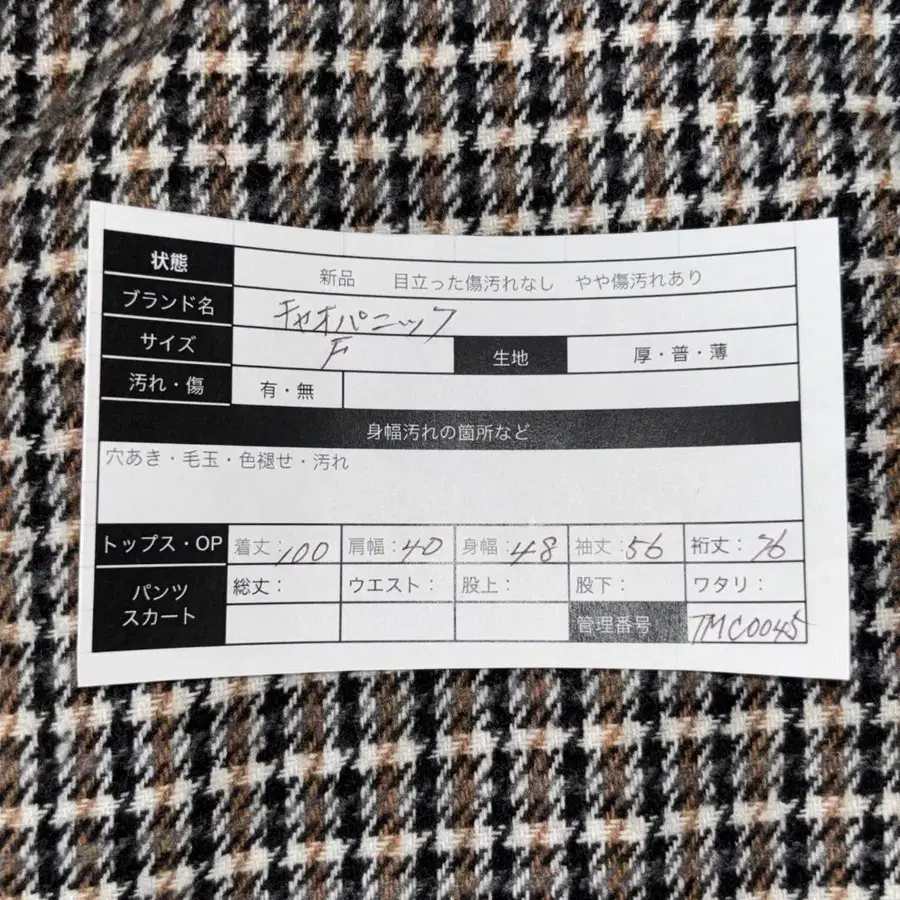 状態 新品 目立った傷汚れなし やや傷汚れあり
ブランド名 チャオパニック
サイズ F 生地 厚・普・薄
汚れ・傷 有・無
身幅汚れの箇所など
穴あき・毛玉・色褪せ・汚れ
トップス・OP 着丈:100 肩幅:40 身幅:48 袖丈:56 裄丈:76
パンツ 総丈: ウエスト: 股上: 股下: ワタリ:
スカート 管理番号 TMC0045